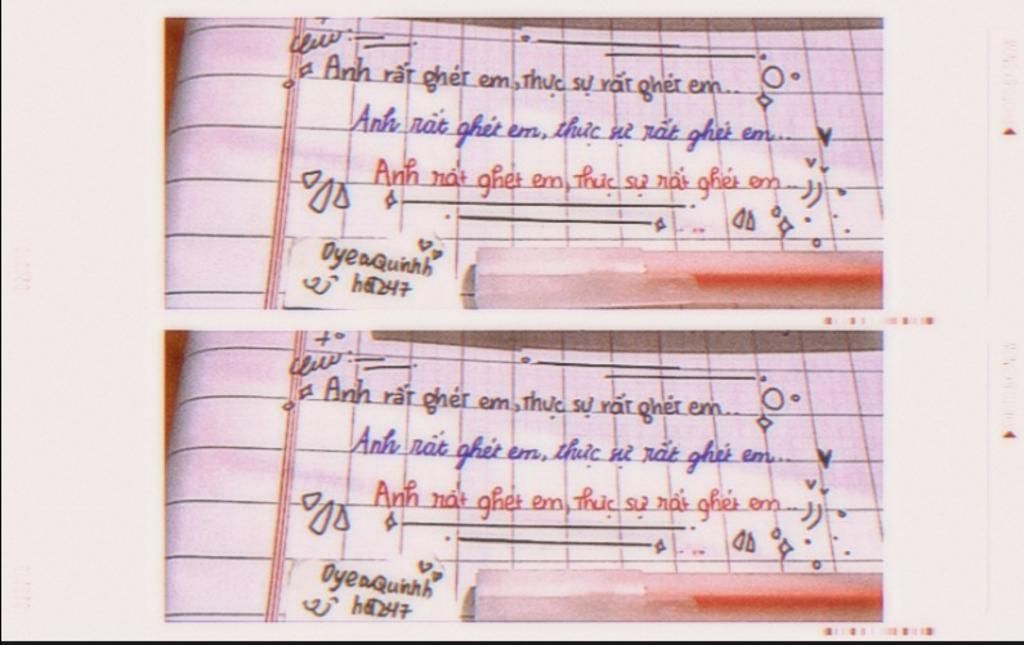 Anh rất ghét em, thực sự rất ghét em..
Anh rất ghét em, thực sự rất ghét em...
Anh rất ghét em, thực sự rất ghét em...
OyeaQuinhh
Anh rất ghét em, thực sự rất ghét em..
Anh rất ghét em, thực sự rất ghét em...
Anh rất ghét em, thực sự rất ghét em...
OyeaQuinhh